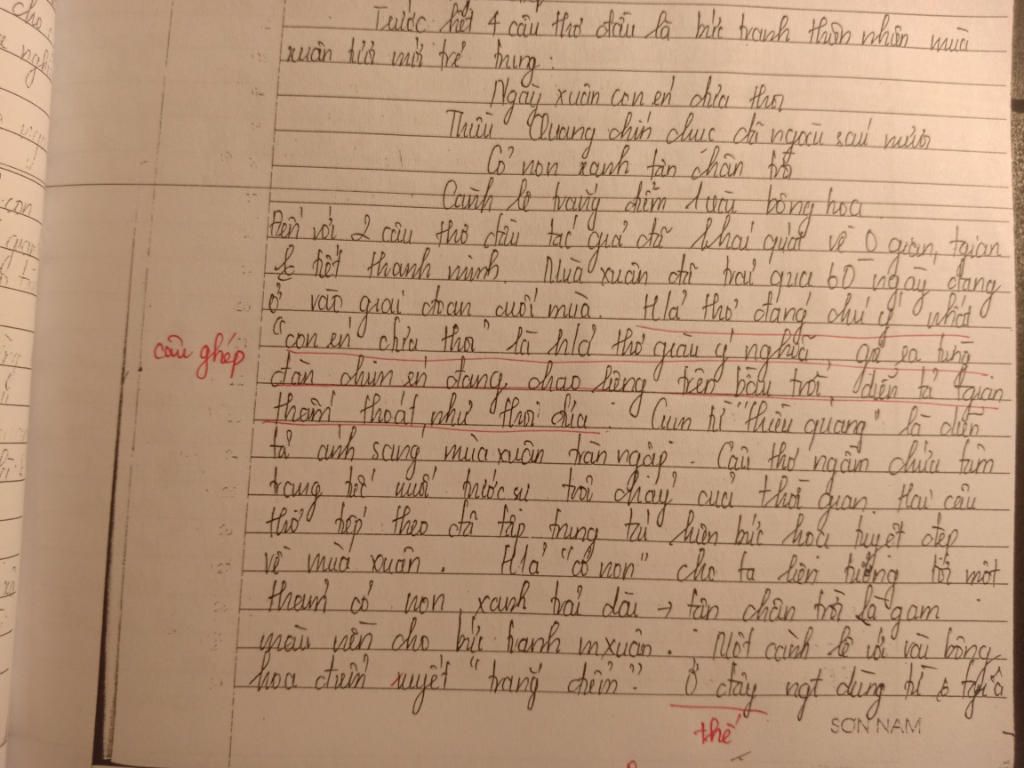 Trước hết 4 câu thơ đầu là bức tranh thiên nhiên mùa
xuân tươi mới trẻ trung:
Ngày xuân con én đưa thoi
Thiều Quang chín chục đã ngoài sáu mươi
Cỏ non xanh tận chân trời
Cành lê trắng điểm 1 vài bông hoa
Đến với 2 câu thơ đầu tác giả đã khái quát về 0 gian, tgian
& tiết thanh minh. Mùa xuân đã trải qua 60 ngày đang
ở vào giai đoạn cuối mùa. H/ả thơ đáng chú ý nhất
câu ghép
"con én đưa thoi" là h/ả thơ giàu ý nghĩa, gợi ra từng
đàn chim én đang chao liệng trên bầu trời, diễn tả tgian
thấm thoát như thoi đưa. Cụm từ "thiều quang" là diễn
tả ánh sáng mùa xuân tràn ngập. Câu thơ ngầm chứa tâm
trạng tiếc nuối trước sự trôi chảy của thời gian. Hai câu
thơ tiếp theo đã tập trung tái hiện bức hoạ tuyệt đẹp
về mùa xuân. H/ả "cỏ non" cho ta liên tưởng tới một
thảm cỏ non xanh trải dài → tận chân trời là gam
màu nền cho bức tranh mxuân. Một cành lê với vài bông
hoa điểm xuyết "trắng điểm". Ở đây ngt dùng từ
thế
SƠN NAM